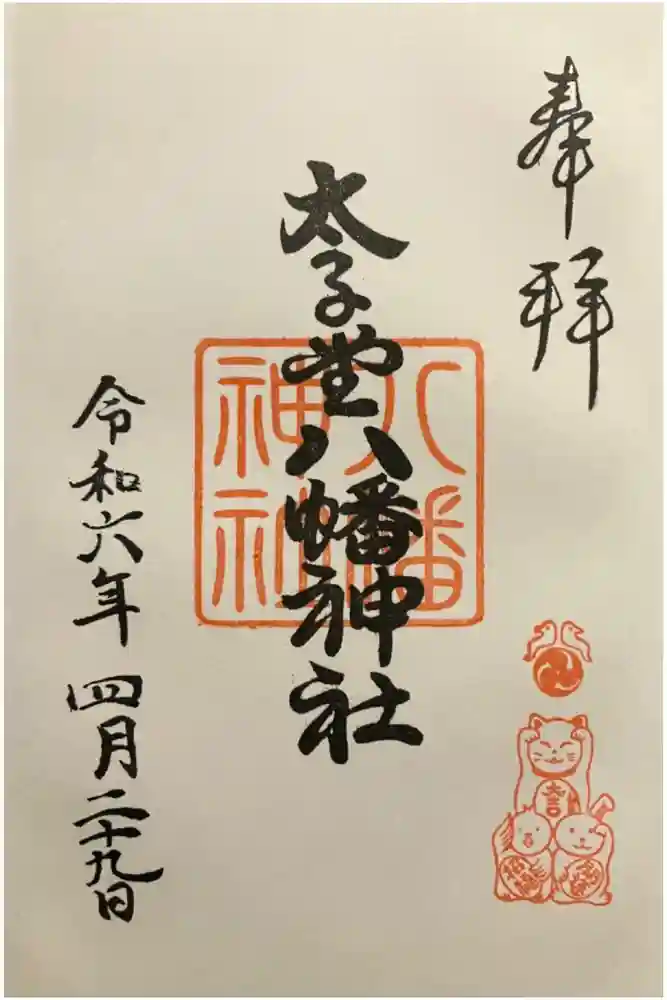 奉拝
太子堂八幡神社
八幡
神社
令和六年四月二十九日
大吉